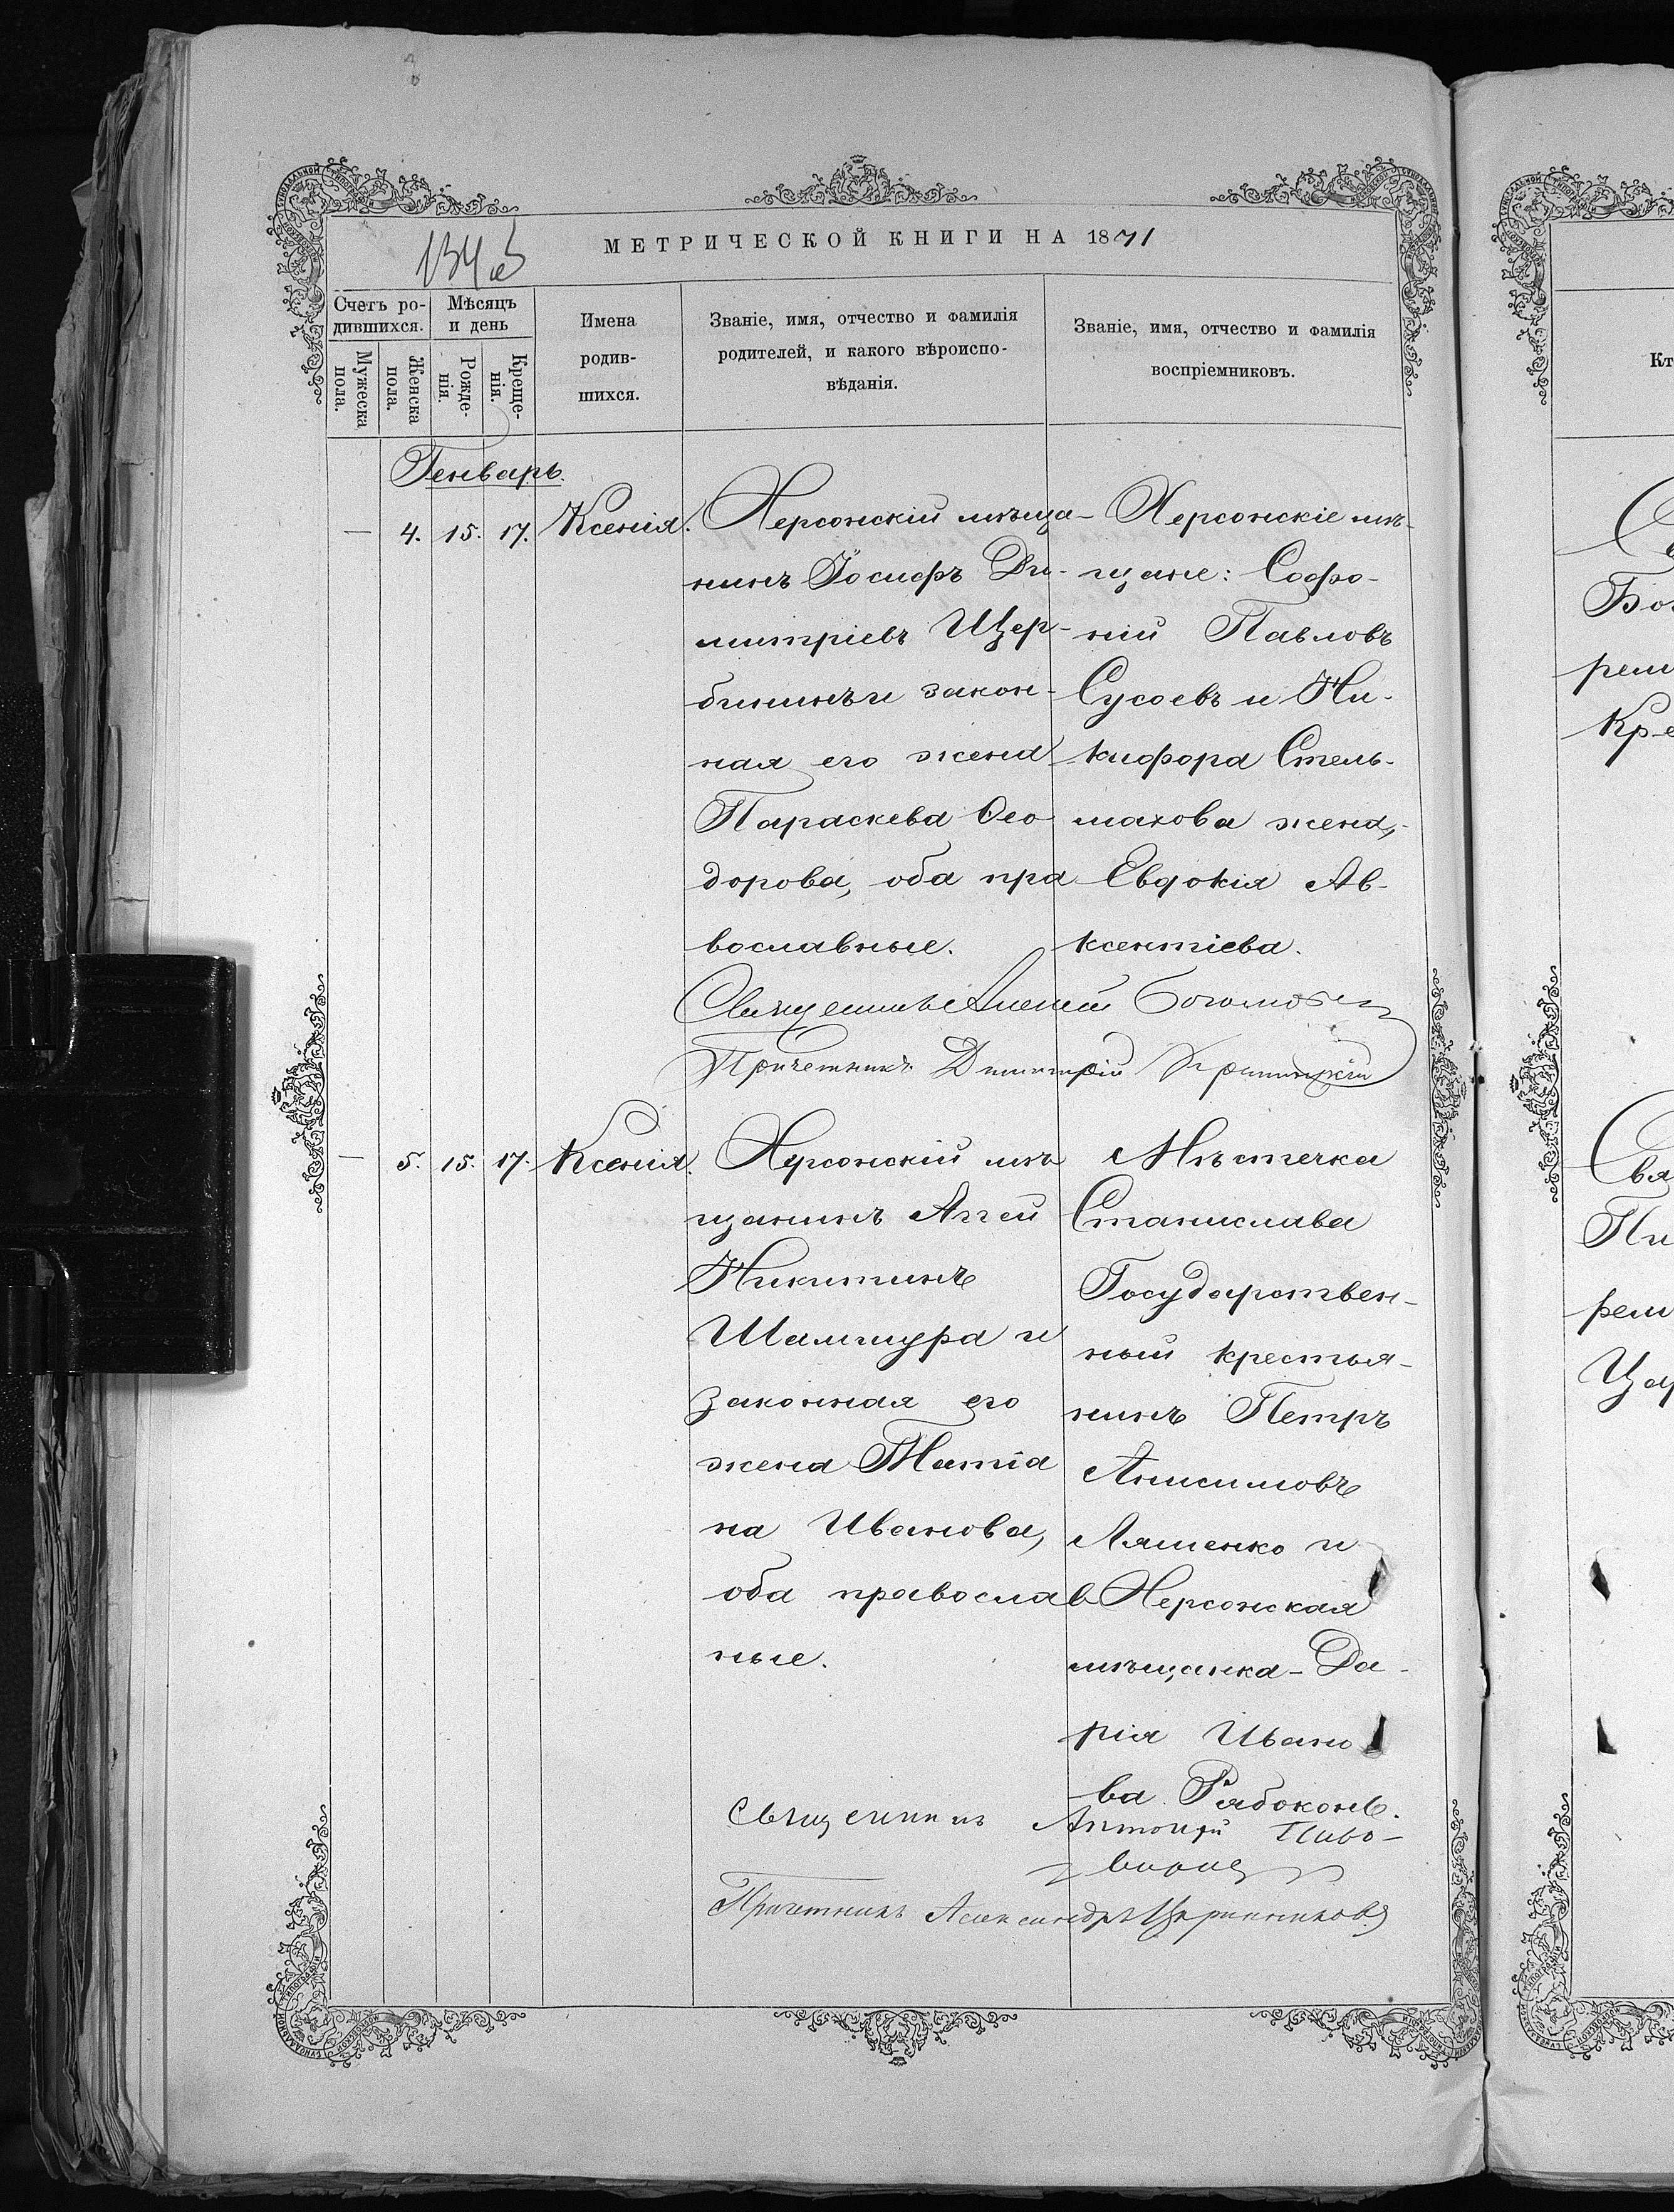 МЕТРИЧЕСКОЙ КНИГИ НА 1871
134 об
Счетъ ро-
дившихся.
Мужеска
пола.
Женска
пола.
Мѣсяцъ
и день
Рожде-
нія.
Креще-
нія.
Имена
родив-
шихся.
Званіе, имя, отчество и фамилія
родителей, и какого вѣроиспо-
вѣданія.
Званіе, имя, отчество и фамилія
воспріемниковъ.
Генварь.
— 4. 15. 17. Ксенія.
Херсонскій мѣща-
нинъ Іосифъ Ди-
митріевъ Щер-
бининъ и закон-
ная его жена
Параскева Ѳео
дорова, оба пра
вославные.
Херсонскіе мѣ-
щане: Софро-
ній Павловъ
Сусоевъ и Ни-
кифора Стель-
махова жена,
Евдокія Ав-
ксентіева.
Священникъ Алексій
Причетникъ Димитрій
— 5. 15. 17. Ксенія.
Херсонскій мѣ
щанинъ Аггей
Никитинъ
Шаммура и
законная его
жена Татіа
на Иванова,
оба православ
ные.
Мѣстечка
Станислава
Государствен-
ный крестья-
нинъ Петръ
Анисимовъ
Ляшенко и
Херсонская
мѣщанка - Да-
рія Ивано
ва Рябоконь.
Священникъ Антоній Пиво-
варовъ
Причетникъ Александръ
Кт
Бо
рем
Кре
Свя
Пи
рем
Цар